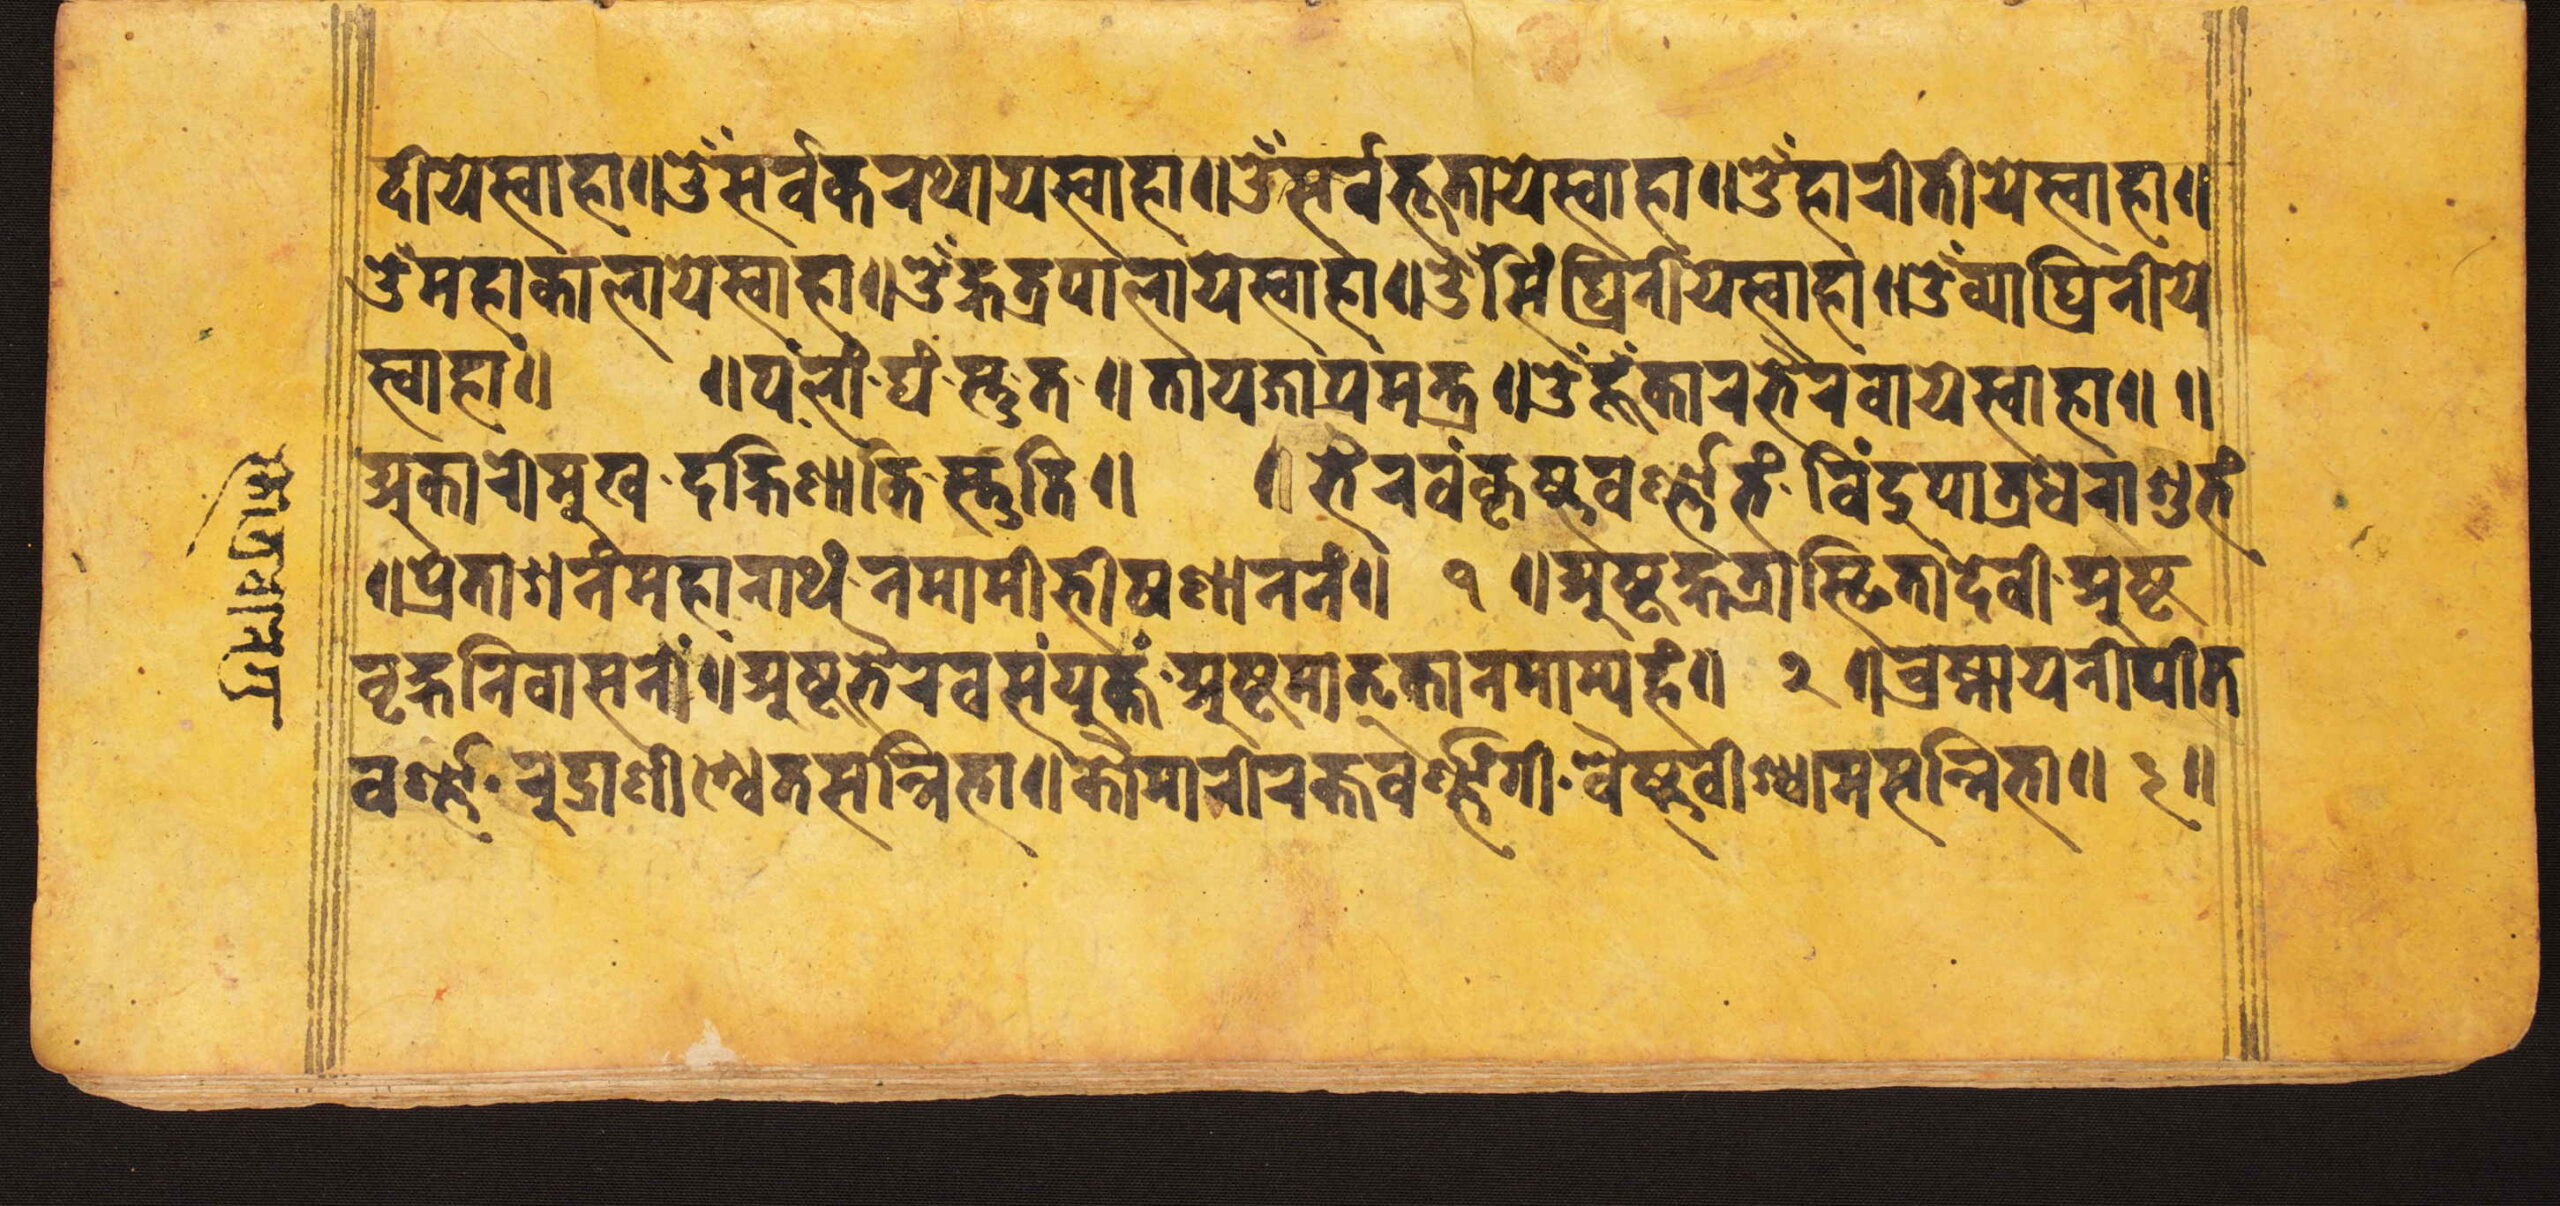 दीयेस्वाहा॥ॐसर्वकरथायस्वाहा॥ॐसर्वभूतायेस्वाहा॥ॐहारीतीयेस्वाहा॥
ॐमहाकालायेस्वाहा॥ॐक्षत्रपालायेस्वाहा॥ॐसिंघ्रिनीयेस्वाहा॥ॐव्याघ्रिनीये
स्वाहा॥ ॥पं·लां·घं·स्तुत॥तायजापमन्त्र॥ॐहूंकारभैरवायेस्वाहा॥ ॥
अकारोमुख·दक्षिणाकि·स्तुति॥ ॥भैरवंकृष्णवर्ण्णतं·विंदुपात्रधराशुभं
॥प्रेताशनंमहानाथं·नमामीभीषणाननं॥ १ ॥अष्टक्षत्रास्थितादेवी·अष्ट
वृक्षनिवासनीं॥अष्टभैरवसंयुक्तं·अष्टमातृकानमाम्यहं॥ २ ॥ब्रह्मायनीपीत
वर्ण्ण·रुद्राणीश्वेतसन्निभा॥कौमारीरक्तवर्ण्णंगी·वैष्णवीश्यामसन्निभा॥ ३॥